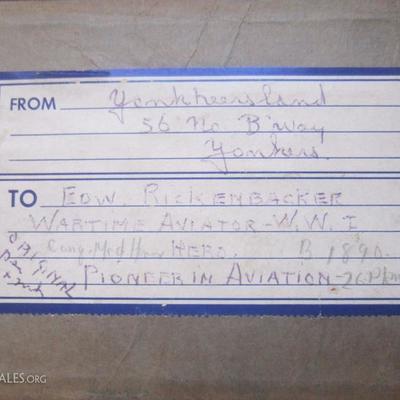 FROM Yonkheersland
56 No B'way
Yonkers.
TO EDW. RICKENBACKER
WARTIME AVIATOR - W.W. I
Cong. Med Hon HERO. B 1890.
ORIGINAL
Pen & Ink
PIONEER IN AVIATION - 26
ALES.ORG